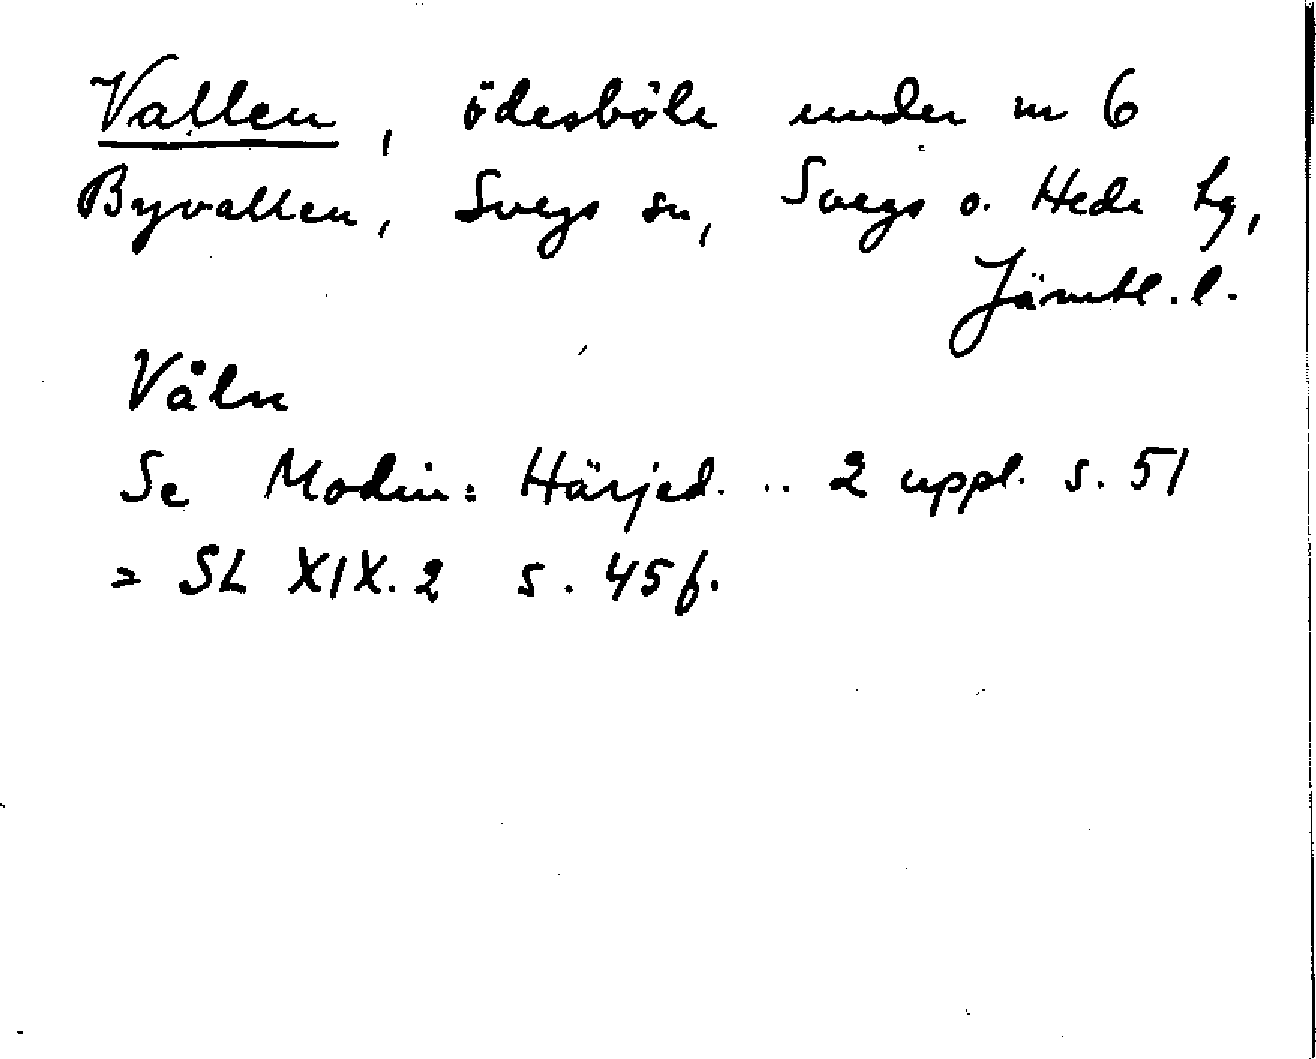 Vallen, ödesböle under nr 6
Byvallen, Svegs sn, Svegs o. Hede hg,
Jämtl. l.
Våln
Se Modin: Härjed. .. 2 uppl. s. 51
= SL XIX. 2 s. 45 f.